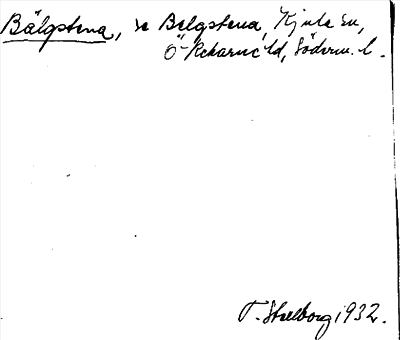 Bälgstena, se Belgstena, Kjula sn,
Ö Rekarne hd, Söderm. l.
T. Skulborg 1932.